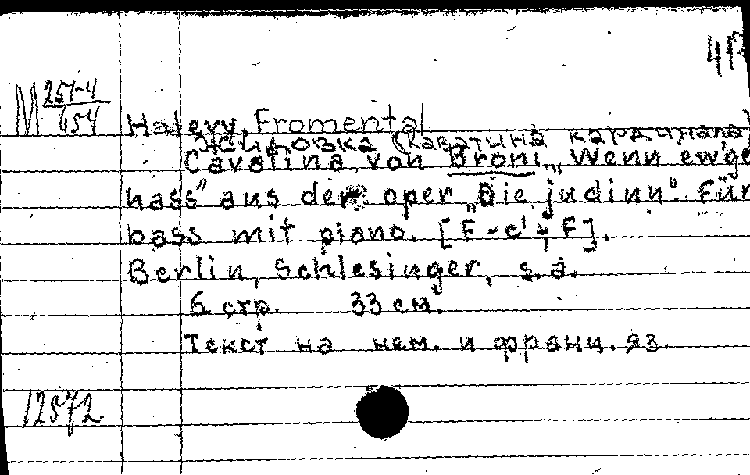 41
M 257-4
654
Halevy, Fromental
Жидовка (Каватина кардинала)
Cavatina von Broni „Wenn ewge
hass" aus der oper „Die judinn". Für
bass mit piano. [F-c¹; F].
Berlin, Schlesinger, s.a.
6 стр. 33 см.
Текст на нем. и франц. яз.
12572